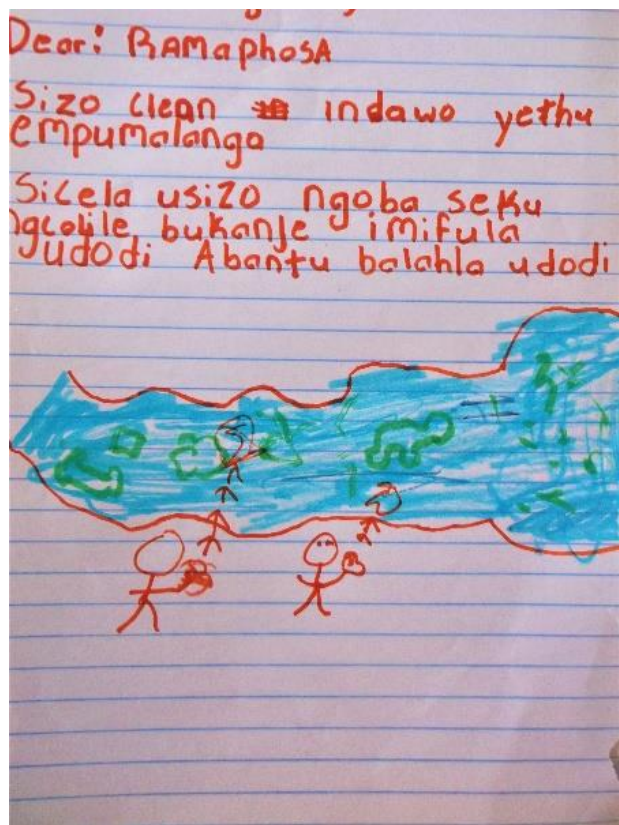 Dear: RAmaphosA
Sizo clean indawo yethu
empumalanga
Sicela usizo ngoba seku
ngcolile bukanje imifula
udodi Abantu balahla udodi